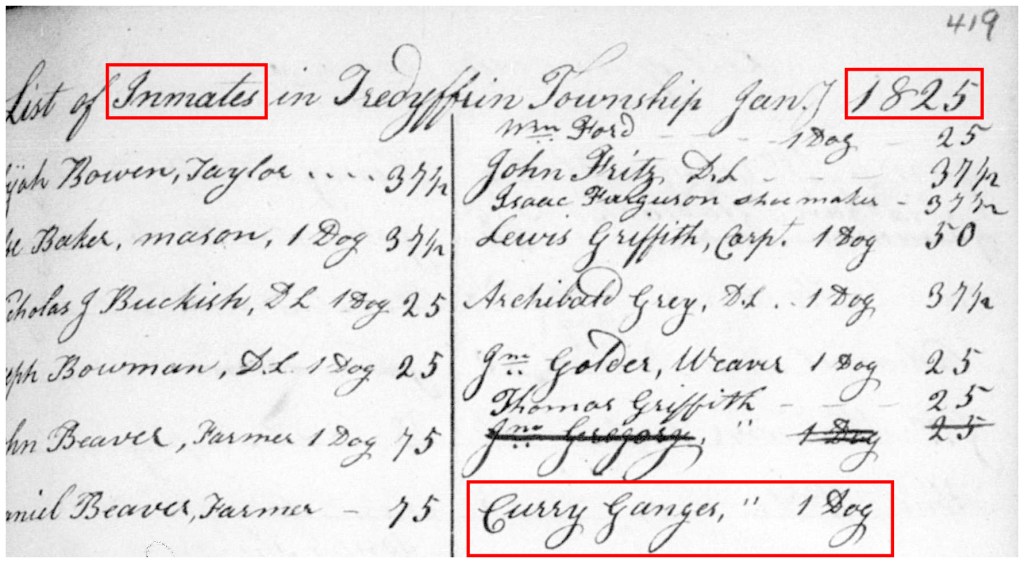 419
List of Inmates in Tredyffrin Township Jany 1825
Wm Ford - - - 1 Dog - 25
Bowen, Taylor .... 37½
John Fritz, D.L - - - - 37½
Isaac Farguson shoemaker - 37½
Baker, mason, 1 Dog 37½
Lewis Griffith, Carpt. 1 Dog 50
J Buckish, D L 1 Dog 25
Archibald Grey, D.L .. 1 Dog 37½
Bowman, D.L. 1 Dog 25
Jno. Golder, Weaver 1 Dog 25
Thomas Griffith - - - 25
Beaver, Farmer 1 Dog 75
Jno Gregory, " 1 Dog 25
Beaver, Farmer - 75
Curry Ganges, " 1 Dog